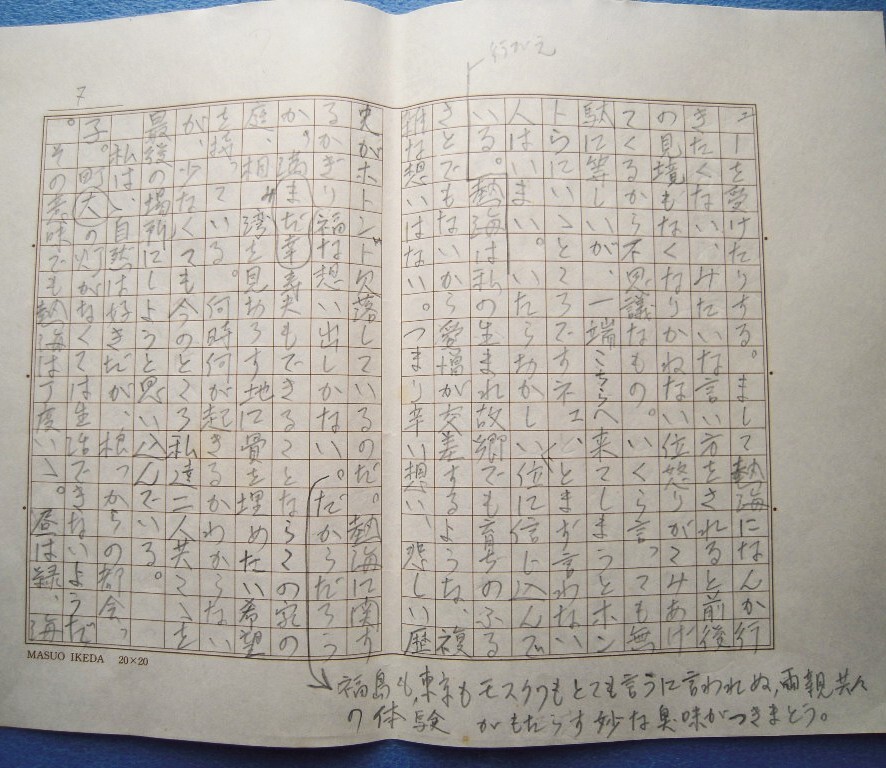 7
行がえ
ユーを受けたりする。まして熱海になんか行
きたくない、みたいな言い方をされると前後
の見境もなくなりかねない位怒りがこみあげ
てくるから不思議なもの。いくら言っても無
駄に等しいが、一端こちらへ来てしまうとホン
トうにいいところですネエ、とまず言わない
人はいまい。いたらおかしい位に信じ込んで
いる。熱海は私の生まれ故郷でも育ちのふる
さとでもないから愛憎が交差するような、複
雑な想いはない。つまり辛い想い、悲しい歴
史がホトンド欠落しているのだ。熱海に関す
るかぎり福な想い出しかない。だからだろう
か、満まだ幸夫もできることならこの家の
庭、相湾を見おろす地に骨を埋めたい希望
を持っている。何時何が起きるかわからない
が、少なくても今のところ私達二人共ここを
最後の場所にしようと思い込んでいる。
私は、自然は好きだが、根っからの都会っ
子。町の灯がなくては生活できないようだ
。その意味でも熱海は丁度いい。昼は緑、海
MASUO IKEDA 20×20
福島も、東京もモスクワもとても言うに言われぬ、両親共々
の体験がもたらす妙な臭味がつきまとう。